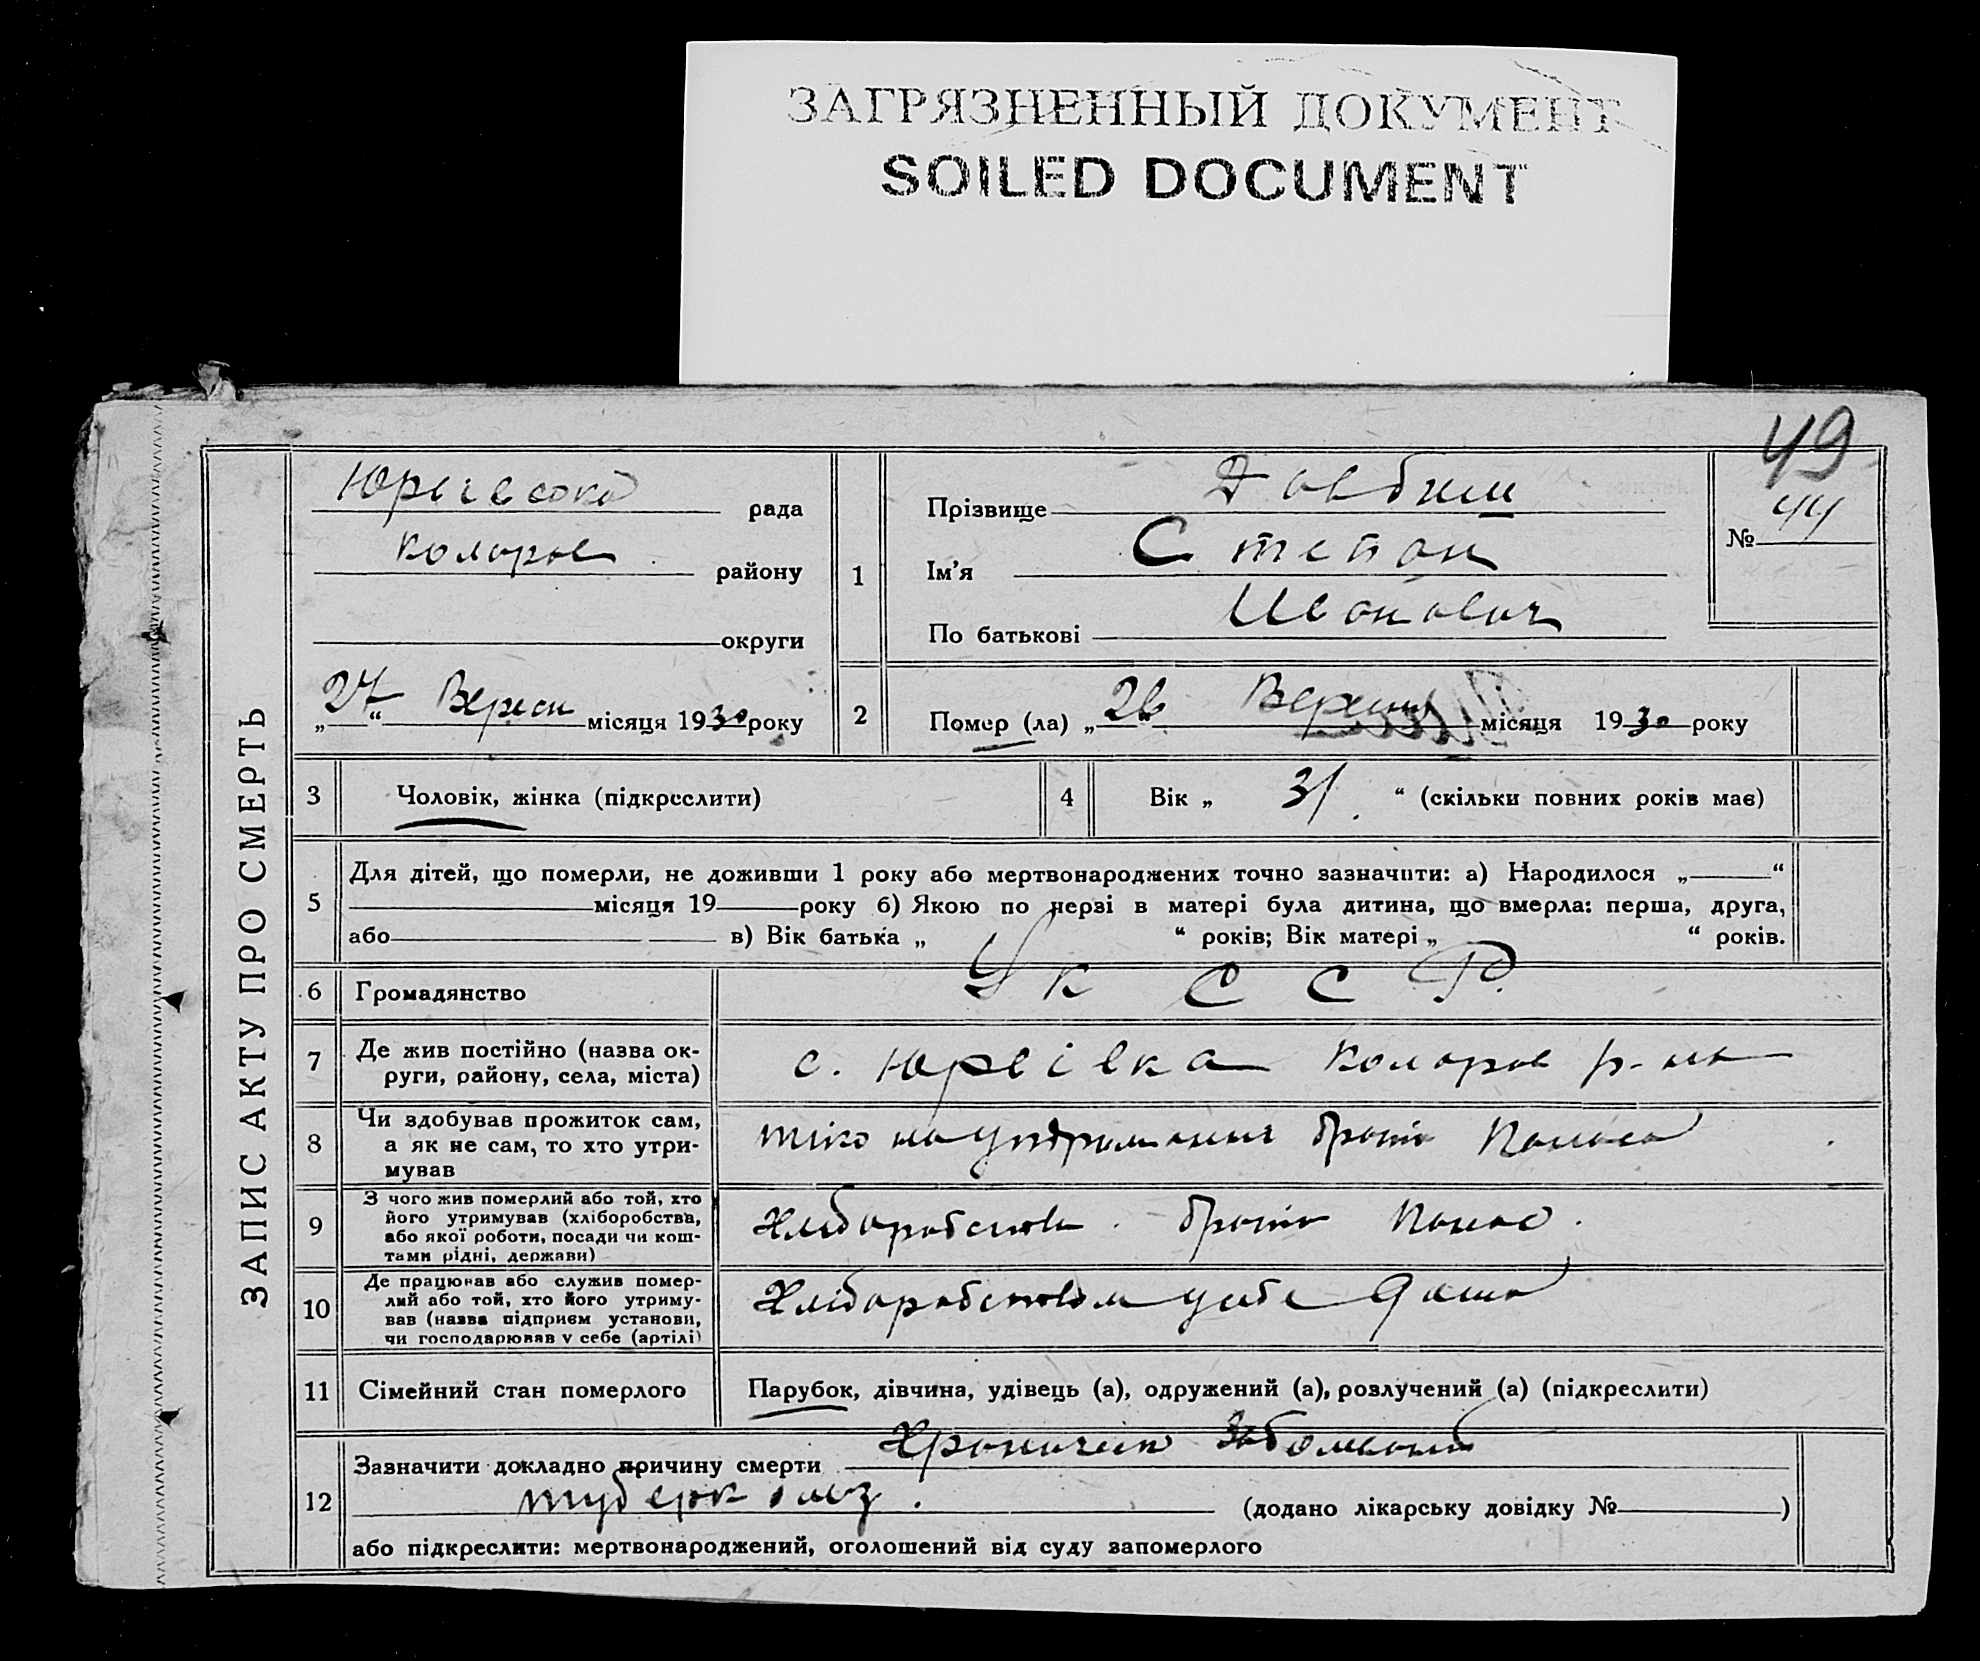 ЗАГРЯЗНЕННЫЙ ДОКУМЕНТ
SOILED DOCUMENT
49
ЗАПИС АКТУ ПРО СМЕРТЬ
рада
Коларов району
округи
„27“ Вересн місяця 1930 року
1
Прізвище Довбиш
Ім'я Степан
По батькові Иванович
№ 44
2
Помер (ла) „26“ Вересня місяця 1930 року
3
Чоловік, жінка (підкреслити)
4
Вік „ 31. “ (скільки повних років має)
5
Для дітей, що померли, не доживши 1 року або мертвонароджених точно зазначити: а) Народилося „ “
місяця 19 року б) Якою по черзі в матері була дитина, що вмерла: перша, друга,
або в) Вік батька „ “ років; Вік матері „ “ років.
6
Громадянство
Ук С С Р.
7
Де жив постійно (назва ок-
руги, району, села, міста)
с. Юрєівка Коларов р-на
8
Чи здобував прожиток сам,
а як не сам, то хто утри-
мував
на брата Панаса
9
З чого жив померлий або той, хто
його утримував (хліборобства,
або якої роботи, посади чи кош-
тами рідні, держави)
Хліборобства. брата Панас.
10
Де працював або служив помер-
лий або той, хто його утриму-
вав (назва підприєм установи,
чи господарював у себе (артілі)
Хліборобством у себе дома
11
Сімейний стан померлого
Парубок, дівчина, удівець (а), одружений (а), розлучений (а) (підкреслити)
12
Зазначити докладно причину смерти
туберкульоз.
(додано лікарську довідку № )
або підкреслити: мертвонароджений, оголошений від суду запомерлого